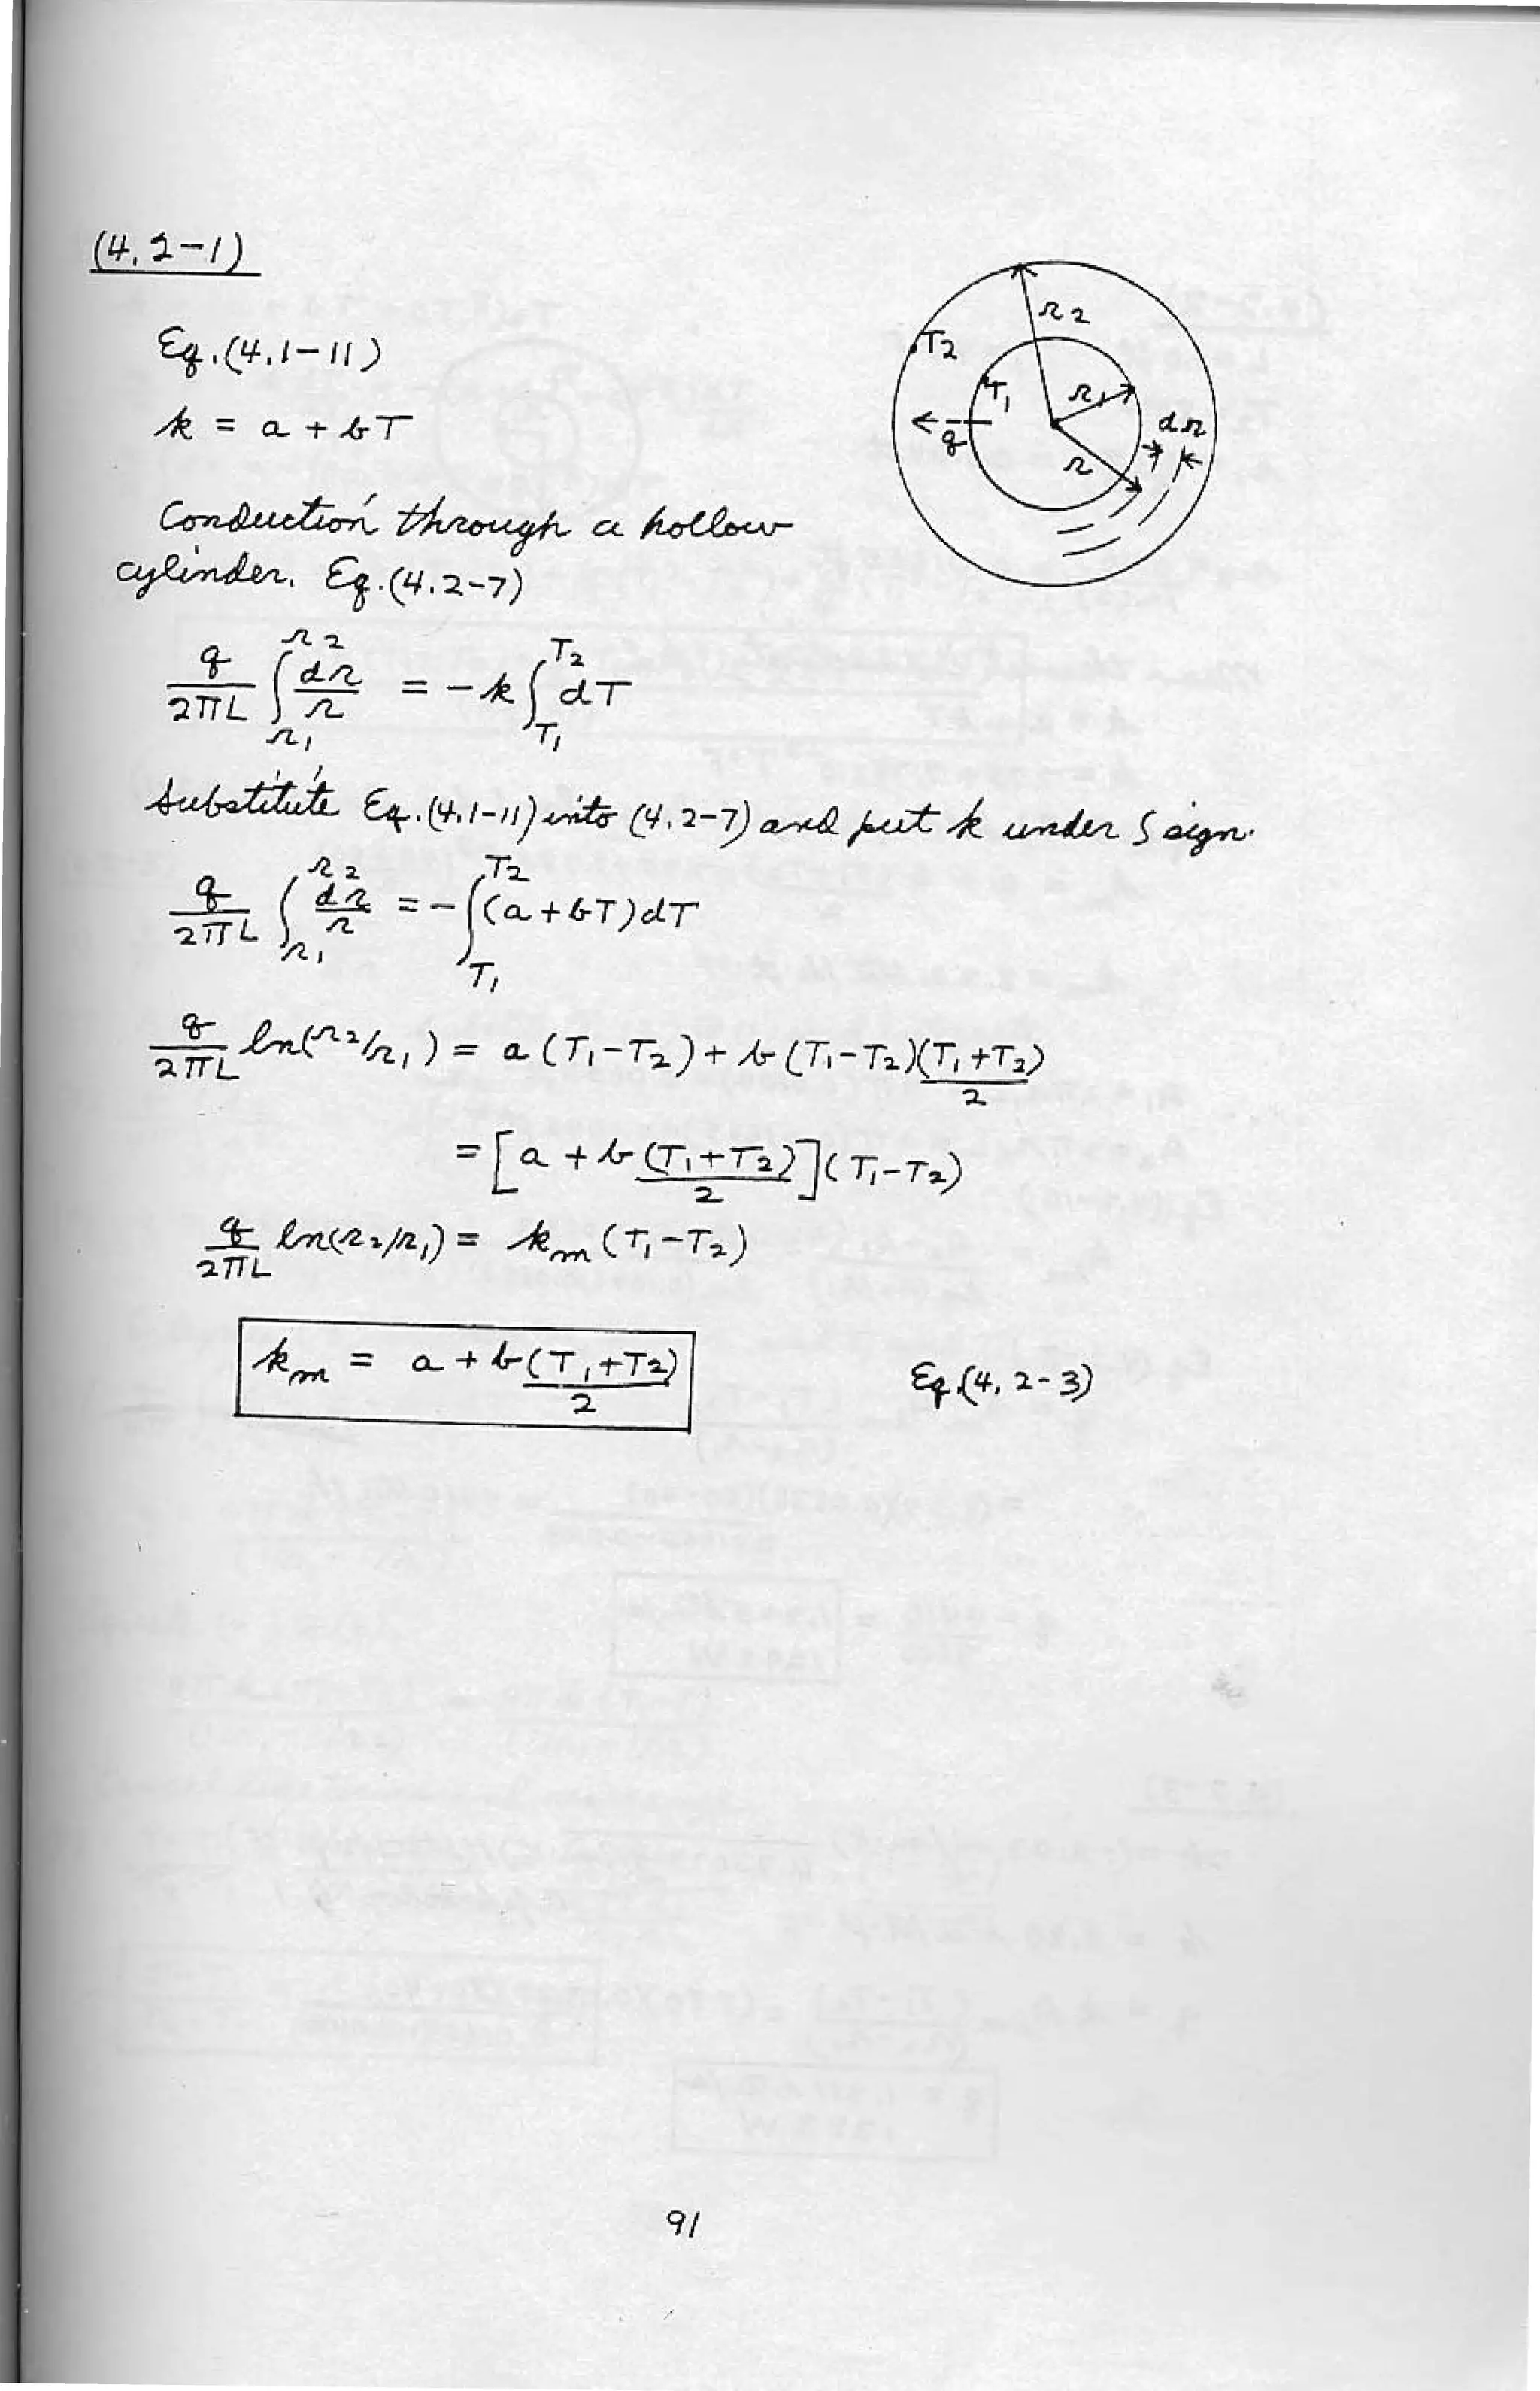 (4.2-1)
Eq.(4.1-11)
k = a + bT
Conduction through a hollow
cylinder. Eq.(4.2-7)
q/(2πL) ∫_{r1}^{r2} dr/r = -k ∫_{T1}^{T2} dT
Substitute Eq.(4.1-11) into (4.2-7) and put k under ∫ sign.
q/(2πL) ∫_{r1}^{r2} dr/r = - ∫_{T1}^{T2} (a+bT)dT
q/(2πL) ln(r2/r1) = a(T1-T2) + b(T1-T2)(T1+T2)/2
= [a + b(T1+T2)/2](T1-T2)
q/(2πL) ln(r2/r1) = km(T1-T2)
km = a + b(T1+T2)/2 Eq.(4.2-3)
r2
T2
T1
r1
q
dr
r
91